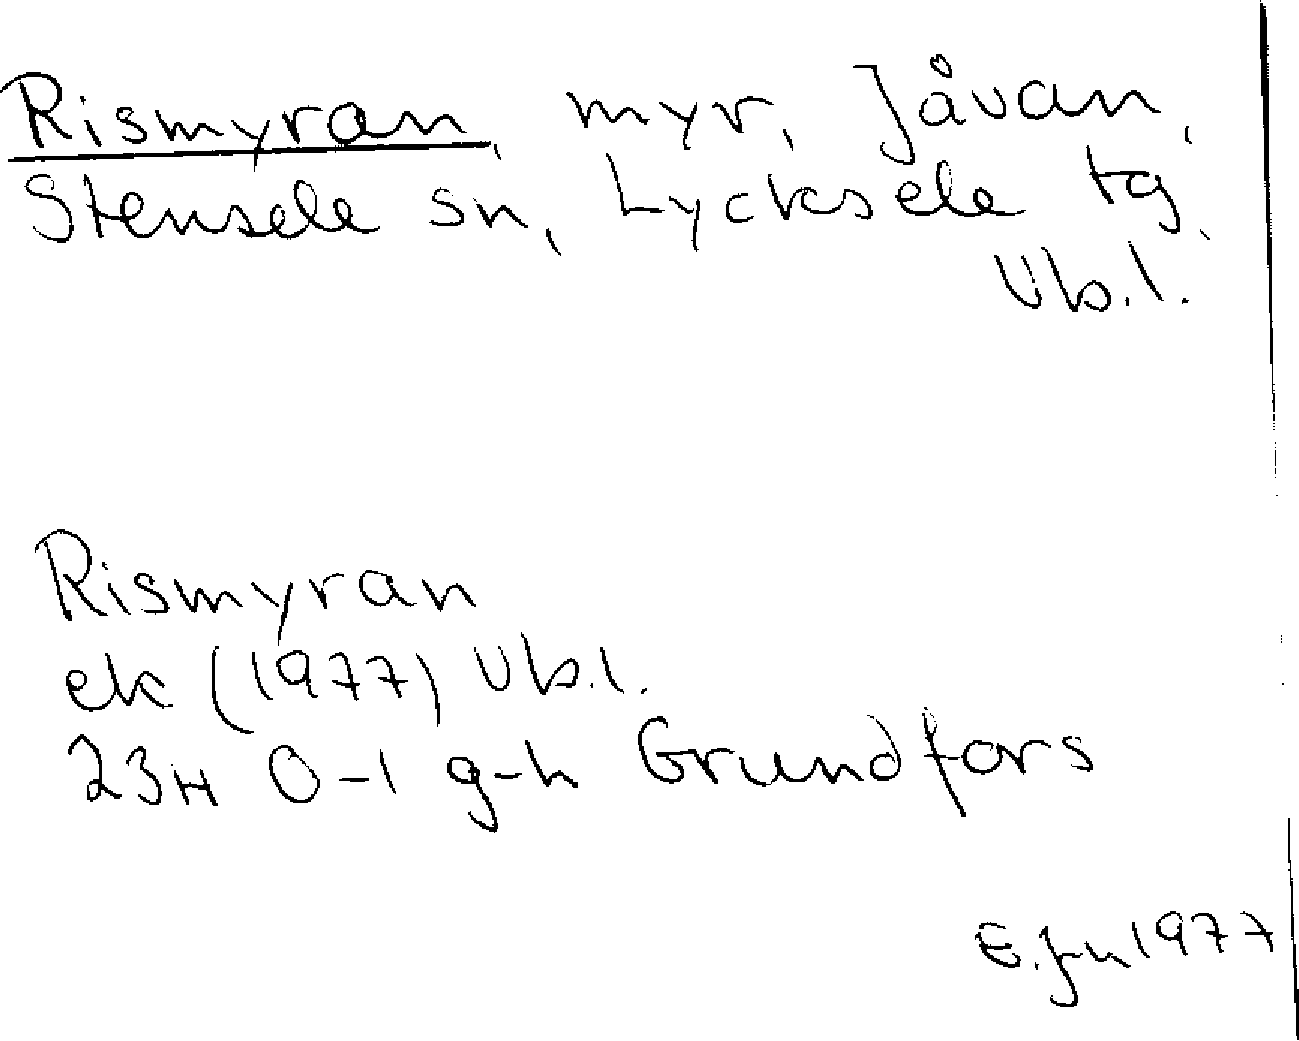 Rismyran, myr, Jåvan,
Stensele sn, Lycksele tg,
Vb.l.
Rismyran
ek (1977) Vb.l.
23H 0-1 g-h Grundfors
1977